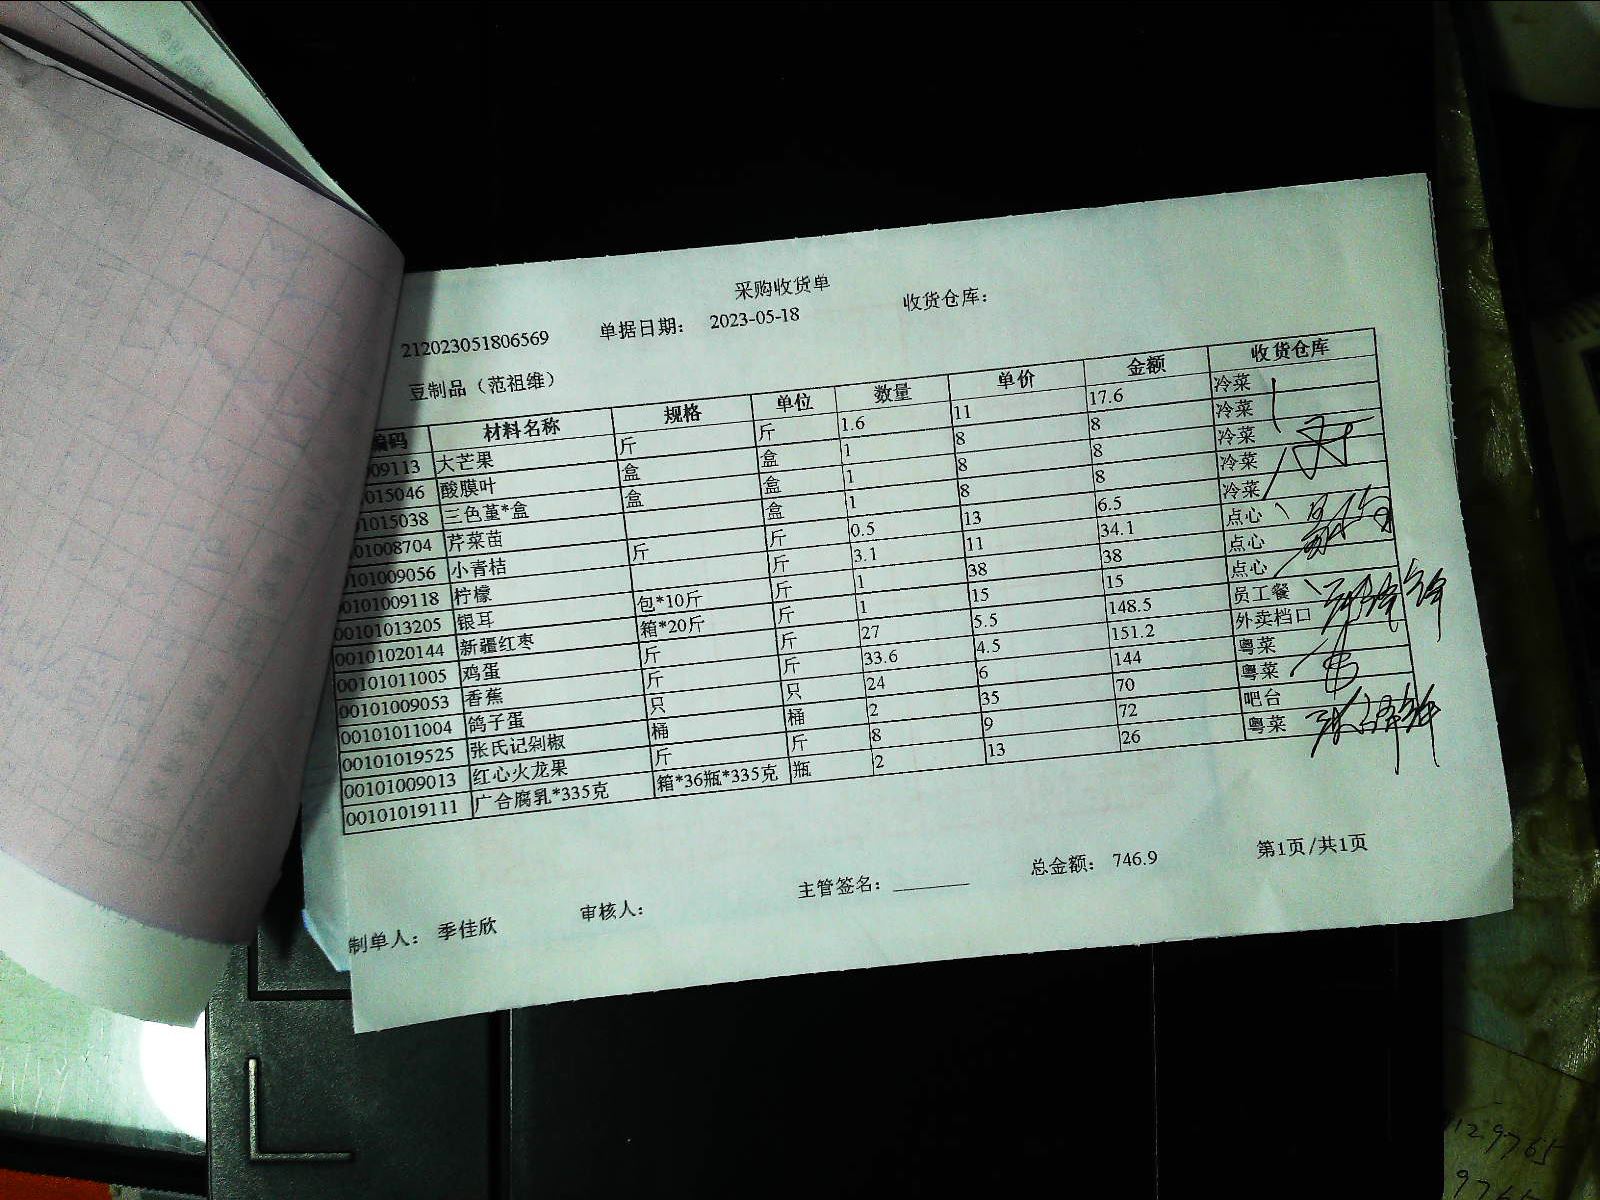 采购收货单
212023051806569 单据日期： 2023-05-18 收货仓库：
豆制品（范祖维）
编码 材料名称 规格 单位 数量 单价 金额 收货仓库
09113 大芒果 斤 斤 1.6 11 17.6 冷菜
015046 酸膜叶 盒 盒 1 8 8 冷菜
1015038 三色堇*盒 盒 盒 1 8 8 冷菜
01008704 芹菜苗 盒 1 8 8 冷菜
0101009056 小青桔 斤 斤 0.5 13 6.5 冷菜
0101009118 柠檬 斤 3.1 11 34.1 点心
00101013205 银耳 包*10斤 斤 1 38 38 点心
00101020144 新疆红枣 箱*20斤 斤 1 15 15 点心
00101011005 鸡蛋 斤 斤 27 5.5 148.5 员工餐
00101009053 香蕉 斤 斤 33.6 4.5 151.2 外卖档口
00101011004 鸽子蛋 只 只 24 6 144 粤菜
00101019525 张氏记剁椒 桶 桶 2 35 70 粤菜
00101009013 红心火龙果 斤 斤 8 9 72 吧台
00101019111 广合腐乳*335克 箱*36瓶*335克 瓶 2 13 26 粤菜
制单人： 季佳欣 审核人： 主管签名：_______ 总金额： 746.9 第1页/共1页
129765